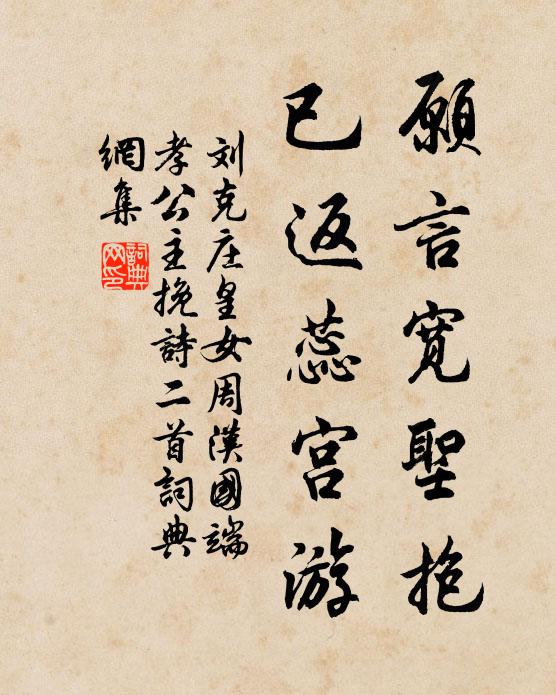 願言寬聖抱
已返蕊宮游
刘克庄皇女周漢國端
孝公主挽詩二首詞典
網集
詞典
网印